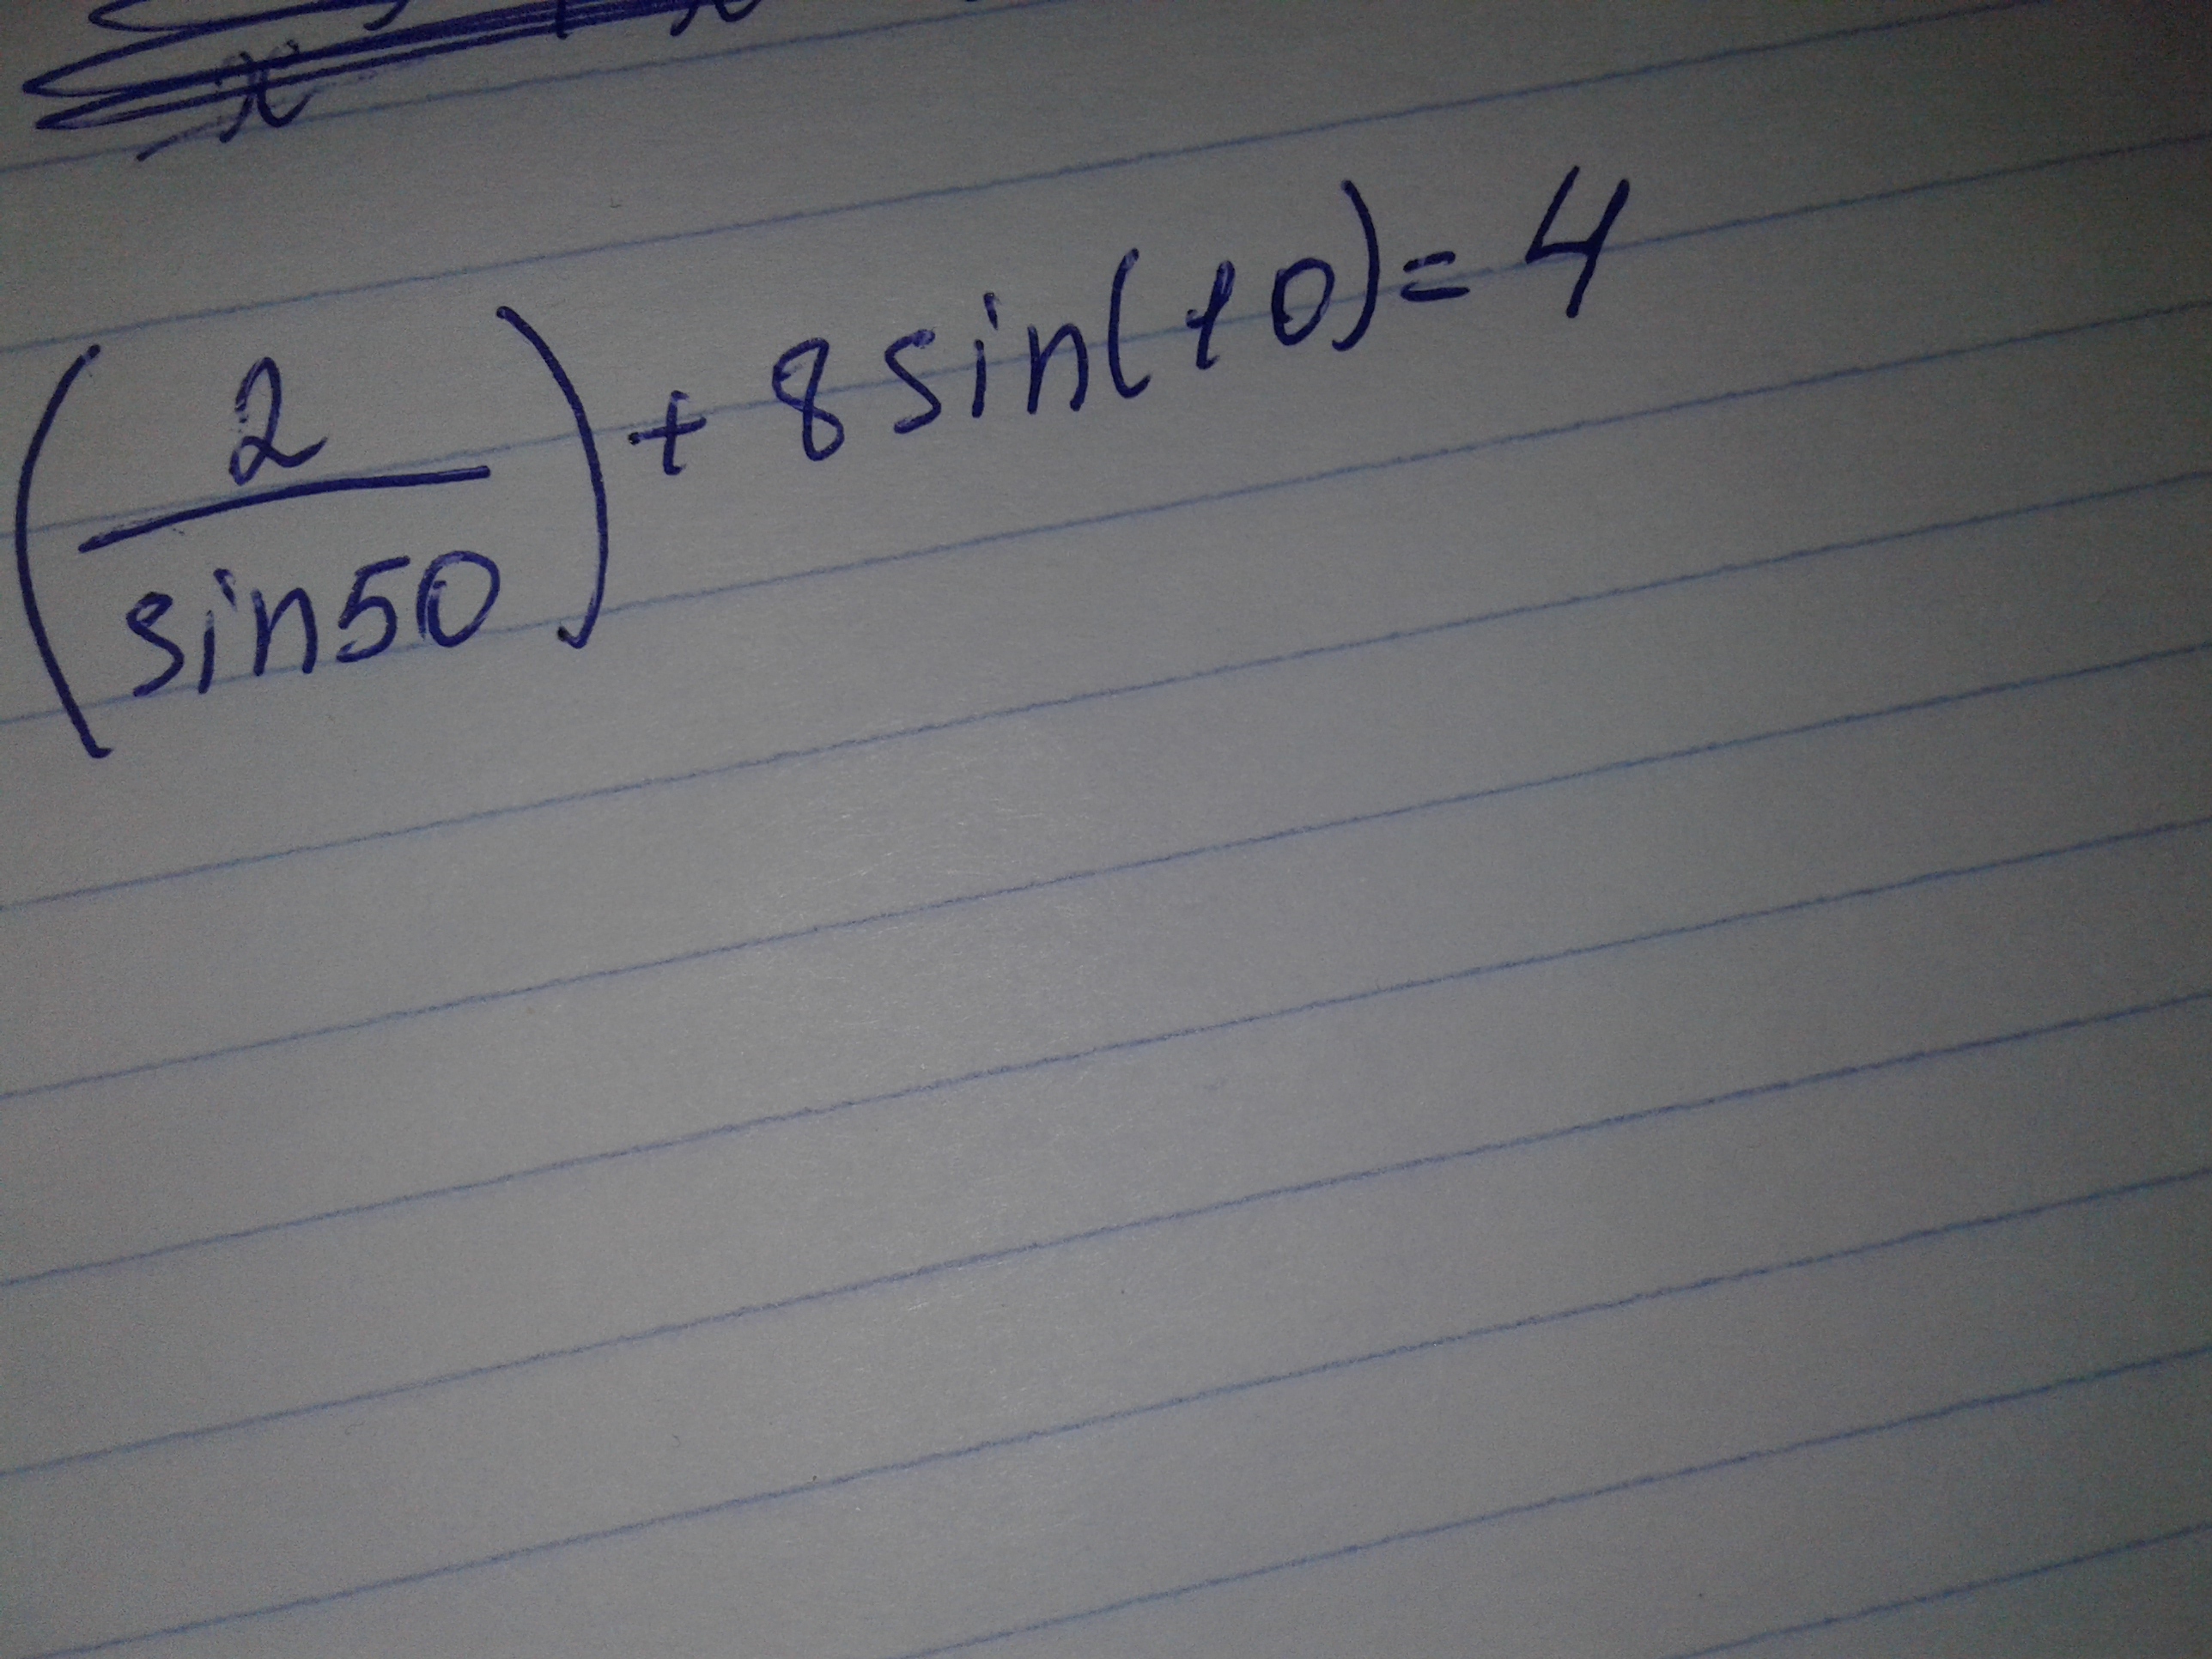 x
(2/sin50) + 8sin(10) = 4